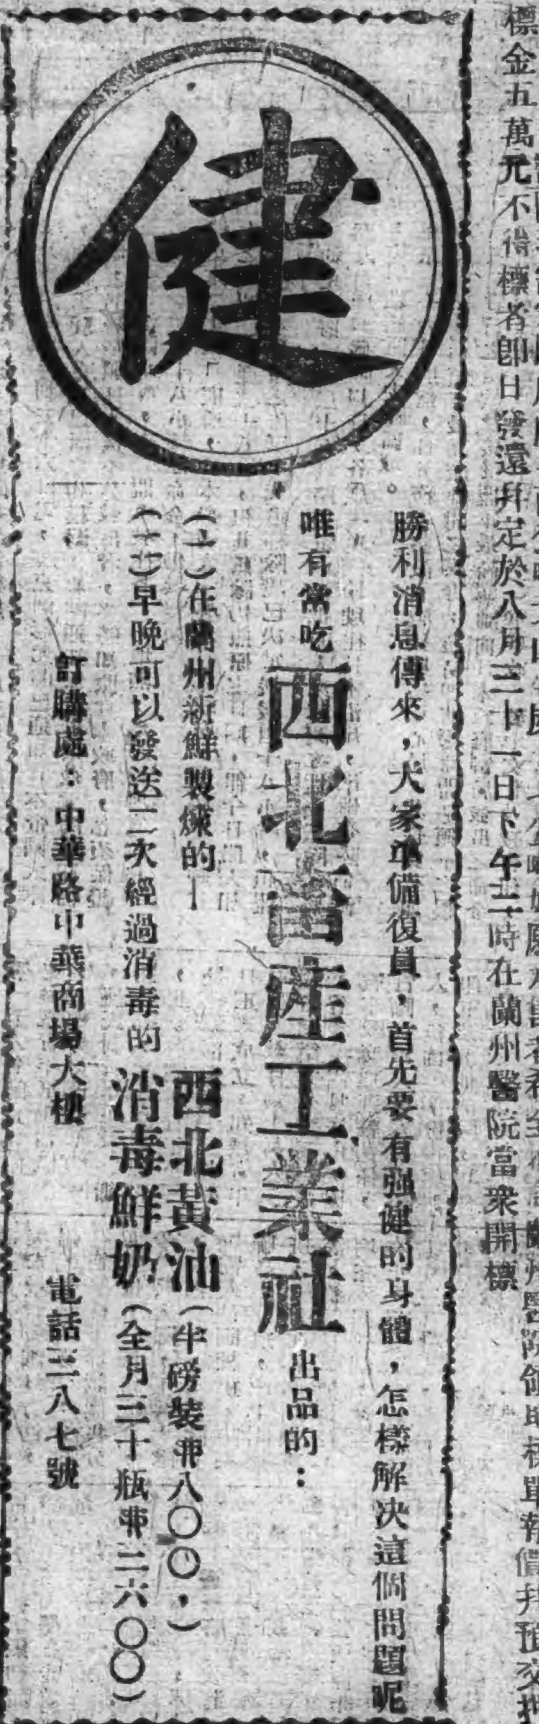 標金五萬元不得標者即日發還幷定於八月三十一日下午二時在蘭州醫院當衆開標
健
勝利消息傳來，大家準備復員，首先要有强健的身體，怎樣解決這個問題呢
唯有常吃西北畜產工業社出品的：
(一)在蘭州新鮮製煉的—西北黃油(半磅裝 八〇〇，)
(二)早晚可以發送二次經過消毒的消毒鮮奶(全月三十瓶 二六〇〇)
訂購處：中華路中華商場大樓 電話三八七號